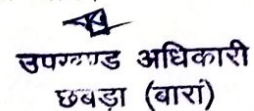 उपखण्ड अधिकारी
छबड़ा (बारां)